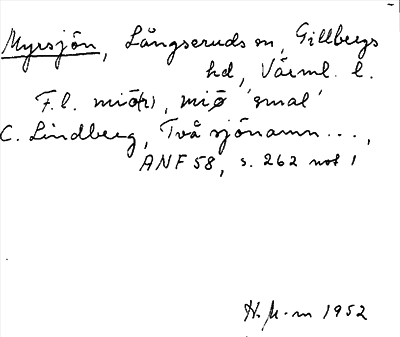 Myrsjön, Långseruds sn, Gillbergs
hd, Värml. l.
F.l. miō(r), miø 'smal'
C. Lindberg, Två sjönamn...,
ANF 58, s. 262 not 1
H. M-m 1952